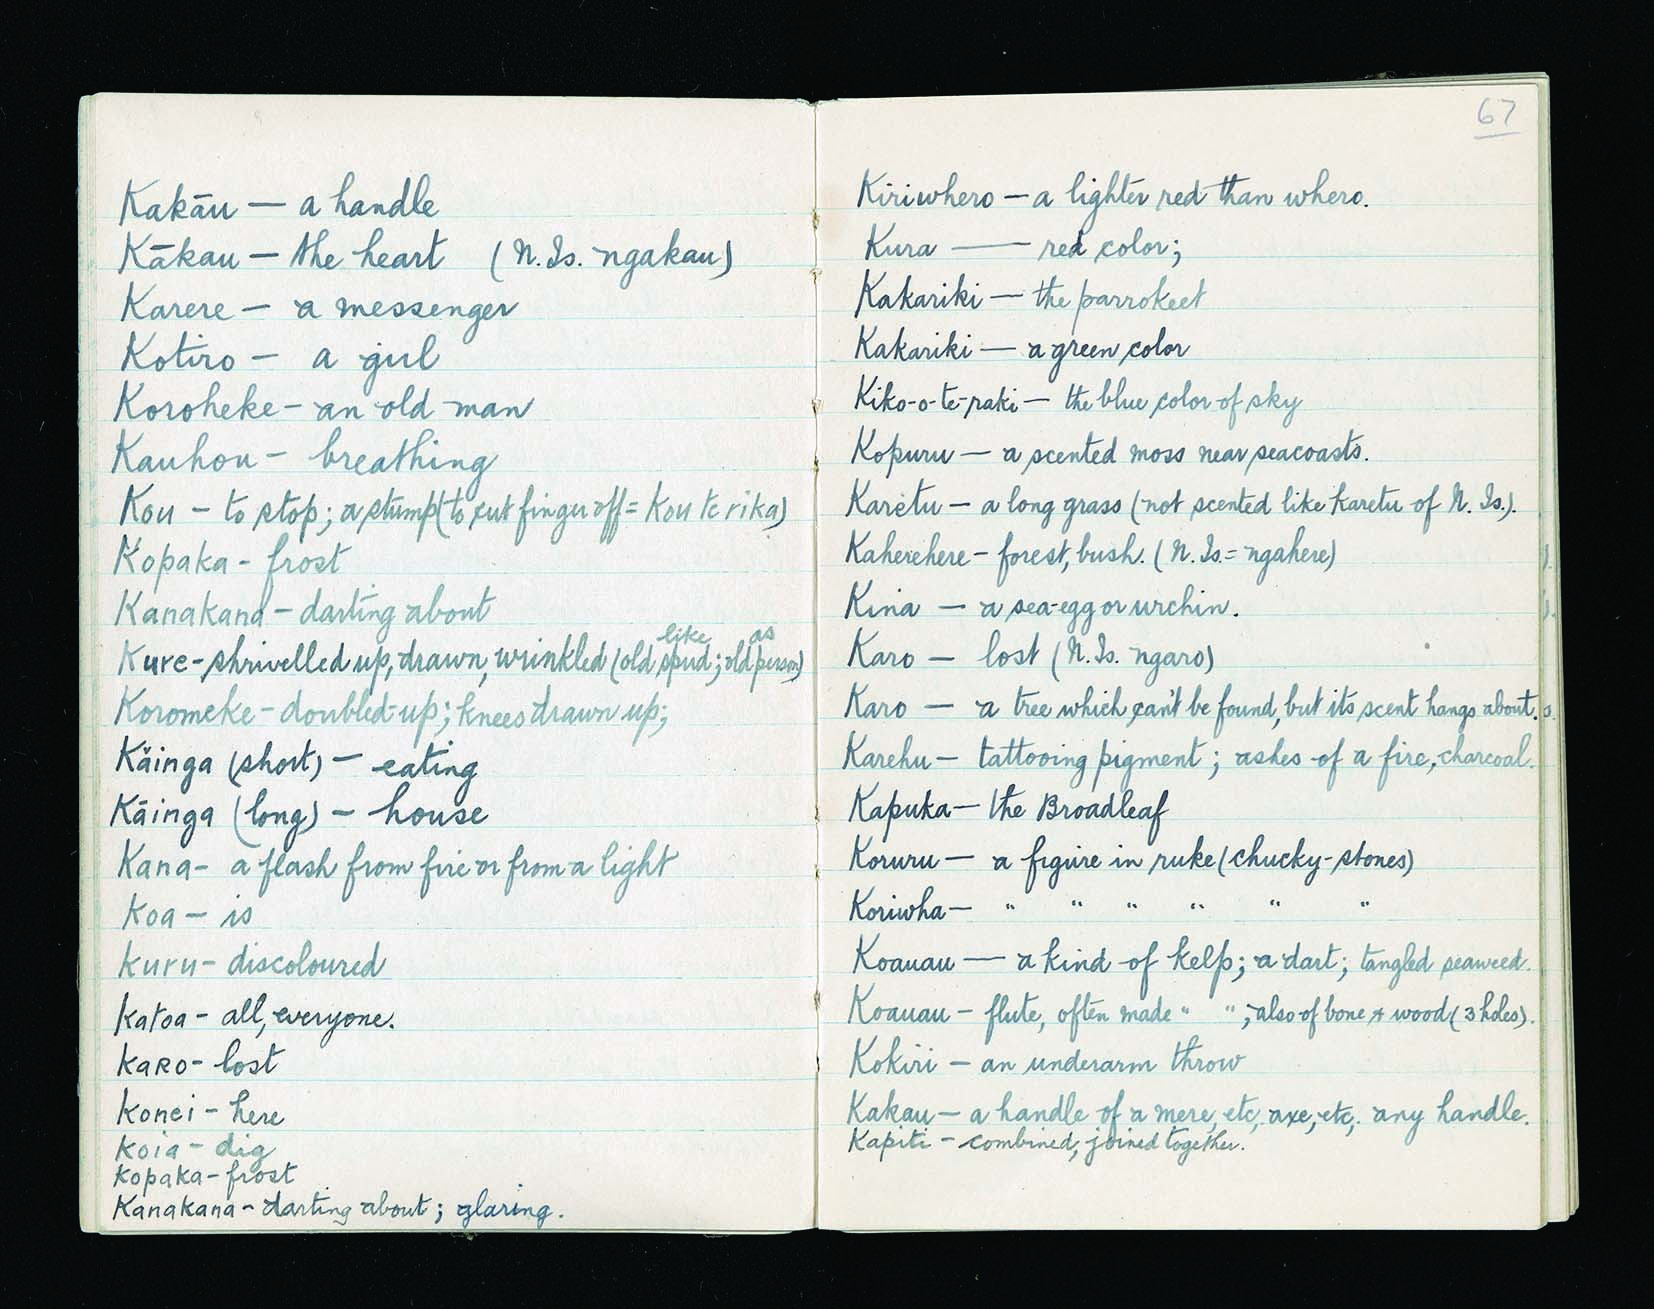 Kakāu — a handle
Kākau — the heart (N. Is. ngakau)
Karere — a messenger
Kotiro — a girl
Koroheke — an old man
Kauhou — breathing
Kou — to stop; a stump (to cut finger off = Kou te rika)
Kopaka - frost
Kanakana - darting about
like as
Kure - shrivelled up, drawn, wrinkled (old spud; old person)
Koromeke - doubled-up; knees drawn up;
Kăinga (short) — eating
Kāinga (long) — house
Kana - a flash from fire or from a light
Koa — is
Kuru - discoloured
Katoa - all, everyone.
Karo - lost
Konei - here
Koia - dig
Kopaka - frost
Kanakana - darting about; glaring.
67
Kiriwhero — a lighter red than whero.
Kura — red color;
Kakariki — the parrokeet
Kakariki — a green color
Kiko-o-te-raki — the blue color of sky
Kopuru — a scented moss near seacoasts.
Karetu — a long grass (not scented like Karetu of N. Is.).
Kaherehere — forest, bush. (N. Is. = ngahere)
Kina — a sea-egg or urchin.
Karo — lost (N. Is. ngaro)
Karo — a tree which can't be found, but its scent hangs about.
Karehu — tattooing pigment; ashes of a fire, charcoal.
Kapuka — the Broadleaf
Koruru — a figure in ruke (chucky-stones)
Koriwha — " " " " " "
Koauau — a kind of kelp; a dart; tangled seaweed.
Koauau — flute, often made " "; also of bone & wood (3 holes).
Kokiri — an underarm throw
Kakau — a handle of a mere, etc, axe, etc, any handle.
Kapiti — combined, joined together.